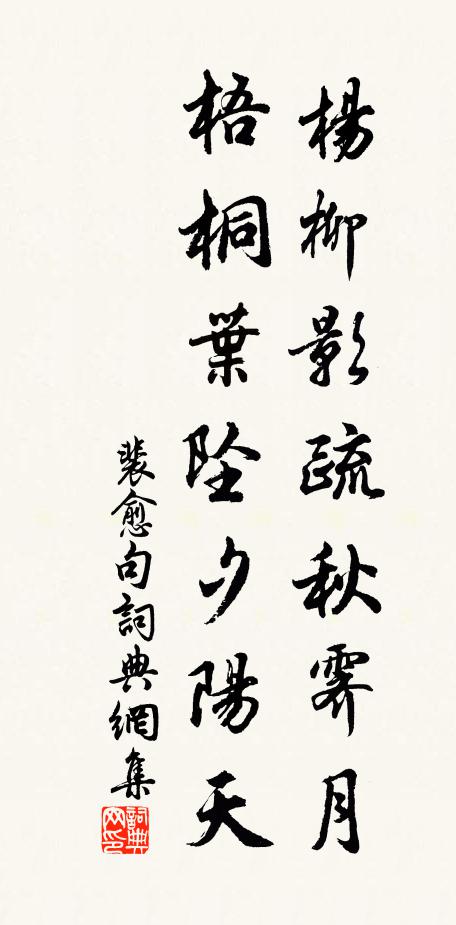 楊柳影疏秋霽月
梧桐葉墜夕陽天
裴愈句詞典網集
詞典網印